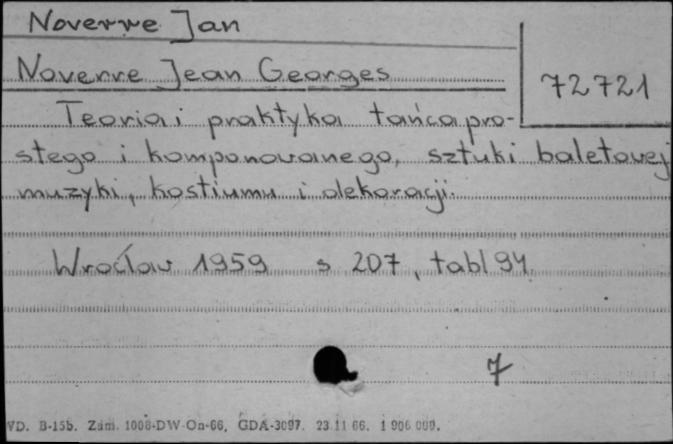 Noverre Jan
Noverre Jean Georges
72721
Teoria i praktyka tańca pro-
stego i komponowanego, sztuki baletowej
muzyki, kostiumu i dekoracji.
Wrocław 1959 s 207, tabl 94
7
VD. B-15b. Zam. 1008-DW-On-66. GDA-3097. 23.11 66. 1 906 000.